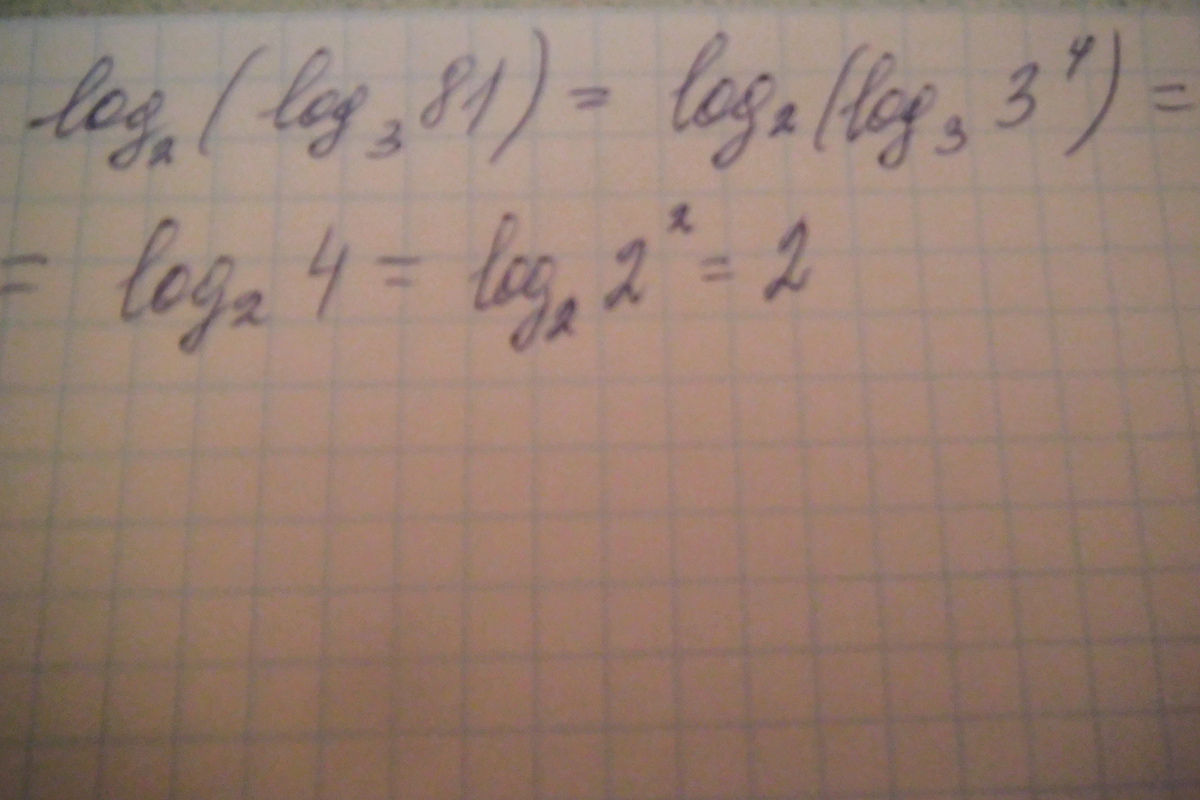 log₂(log₃ 81) = log₂(log₃ 3⁴) =
= log₂ 4 = log₂ 2² = 2